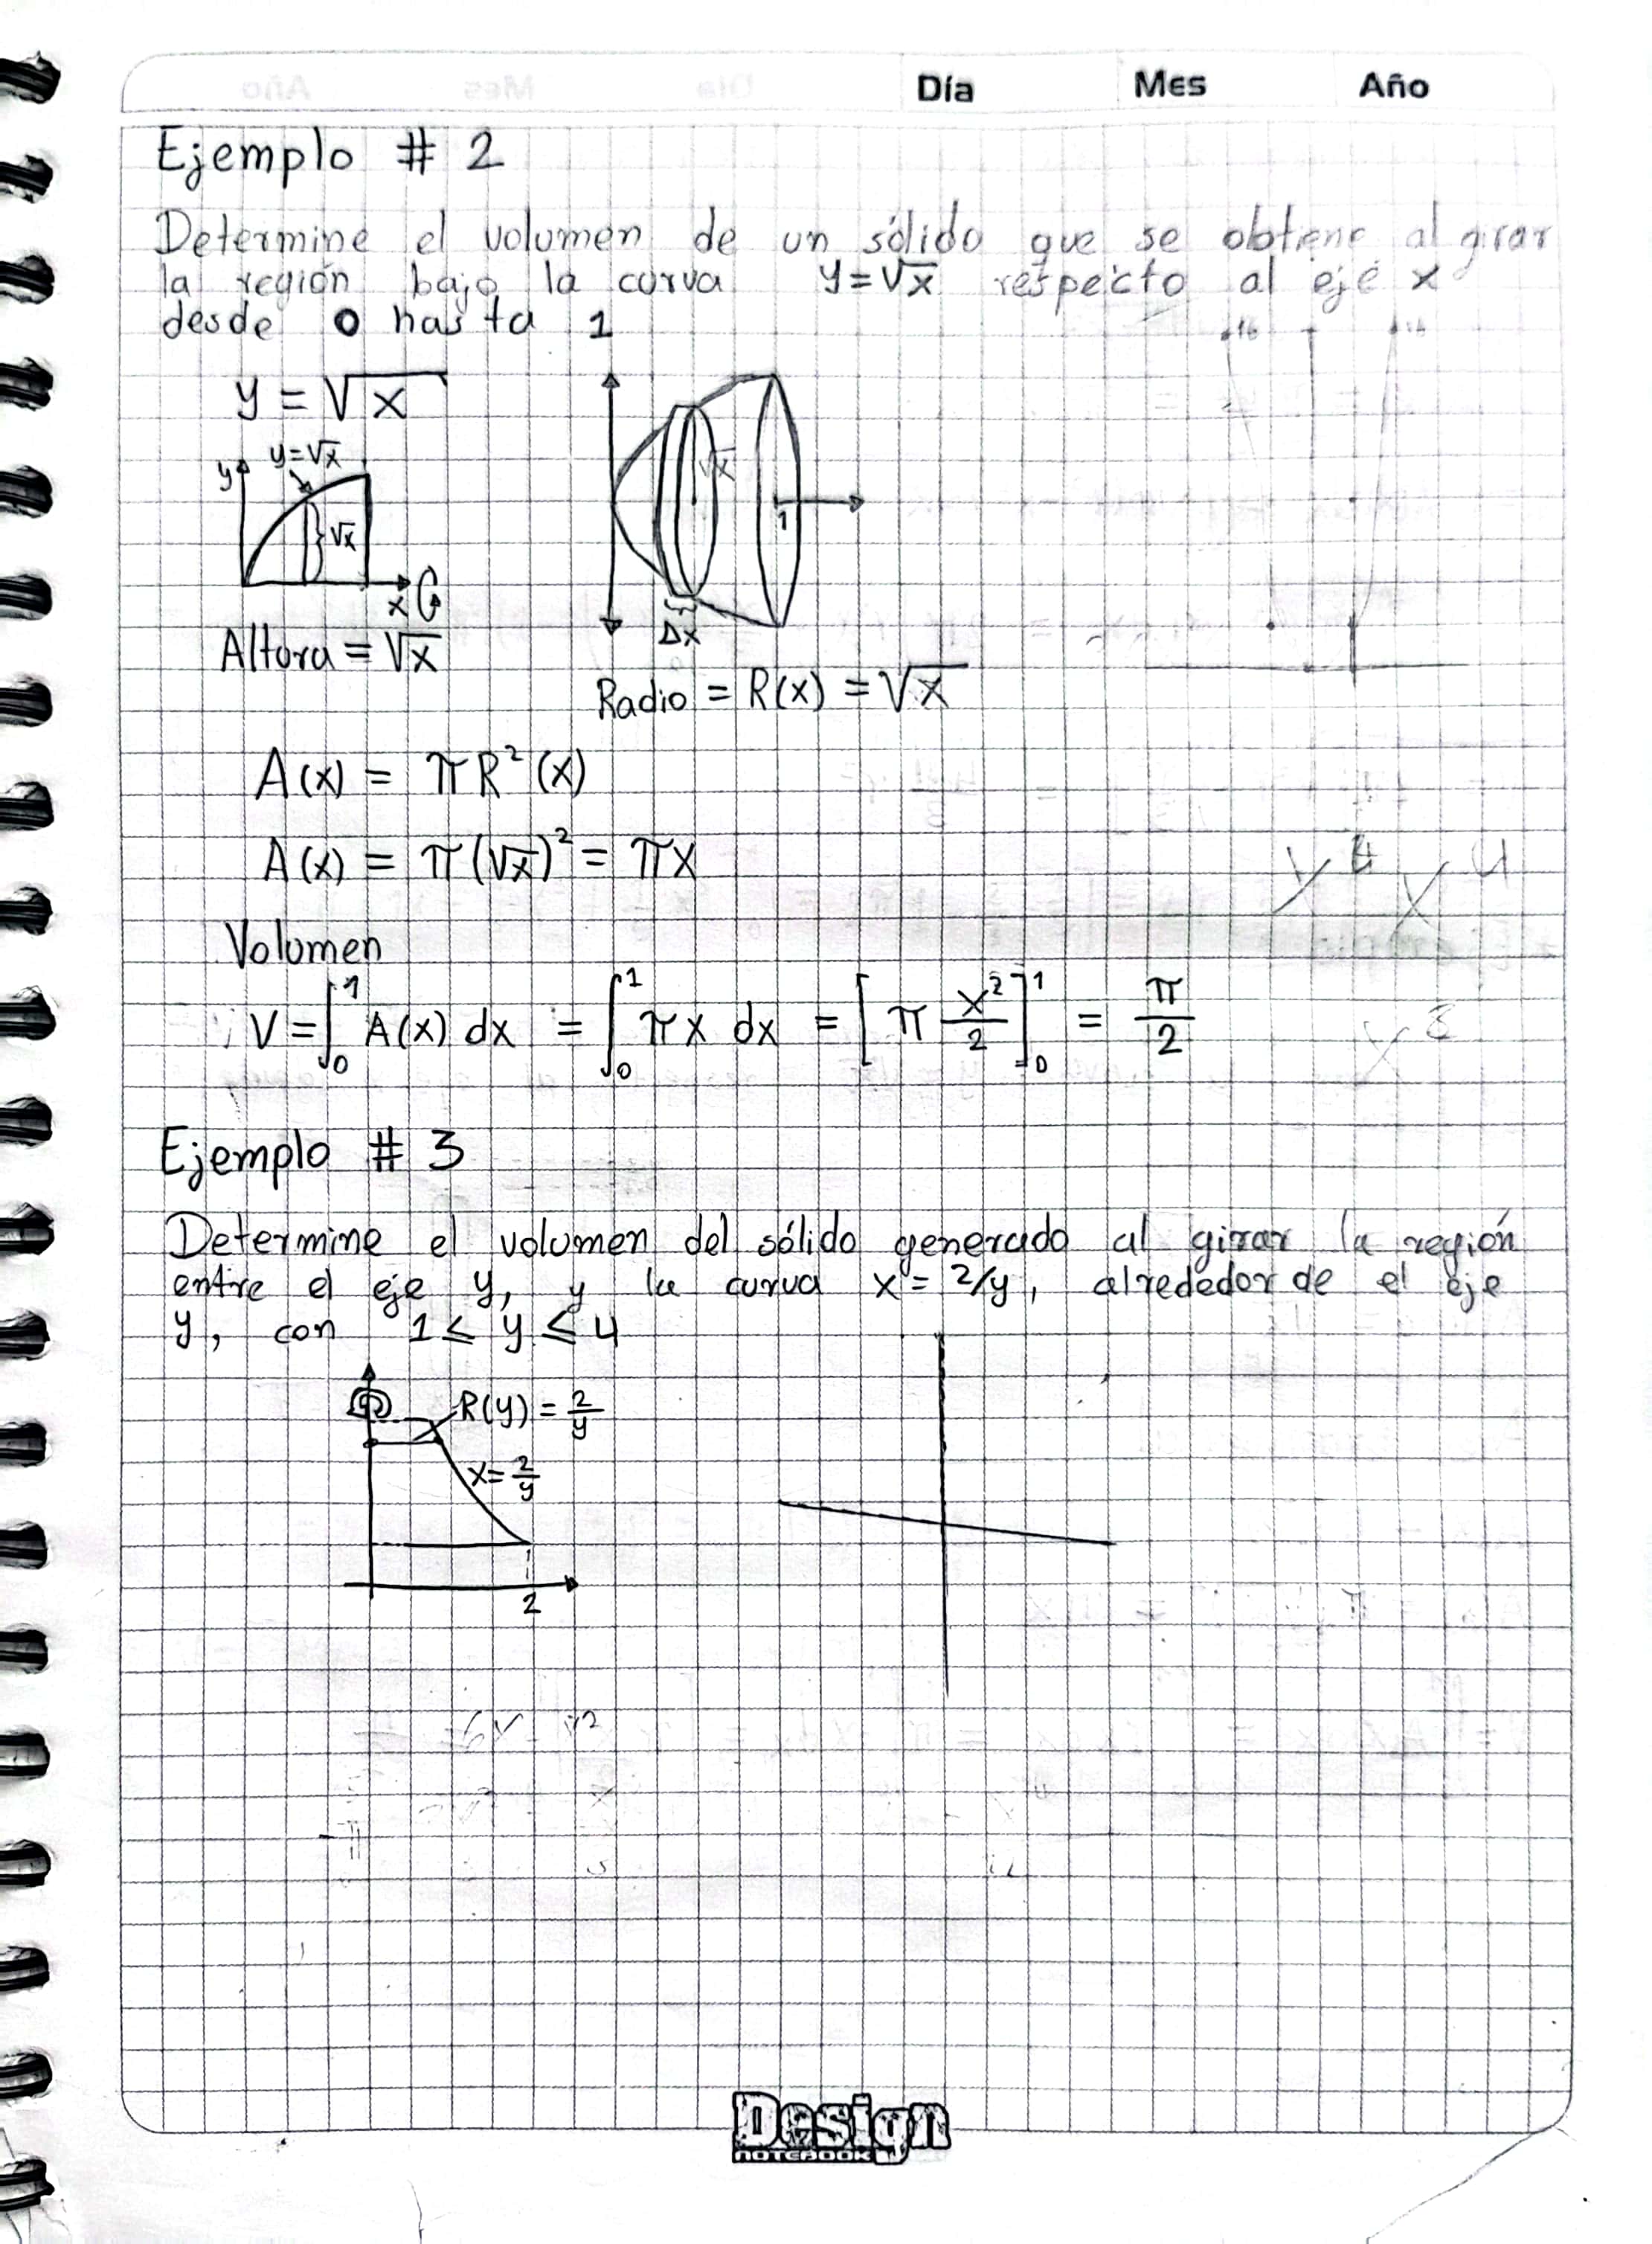 Día Mes Año
Ejemplo # 2
Determine el volumen de un sólido que se obtiene al girar
la región bajo la curva y=√x respecto al eje x
desde 0 hasta 1
y = √x
y y=√x
√x
√x
x
1
Δx
Altura = √x
Radio = R(x) = √x
A(x) = πR²(x)
A(x) = π(√x)² = πx
Volumen
V = ∫₀¹ A(x) dx = ∫₀¹ πx dx = [π x²/2]₀¹ = π/2
Ejemplo # 3
Determine el volumen del sólido generado al girar la región
entre el eje y, y la curva x = 2/y, alrededor de el eje
y, con 1 ≤ y ≤ 4
R(y) = 2/y
x = 2/y
2
Design
NOTEBOOK